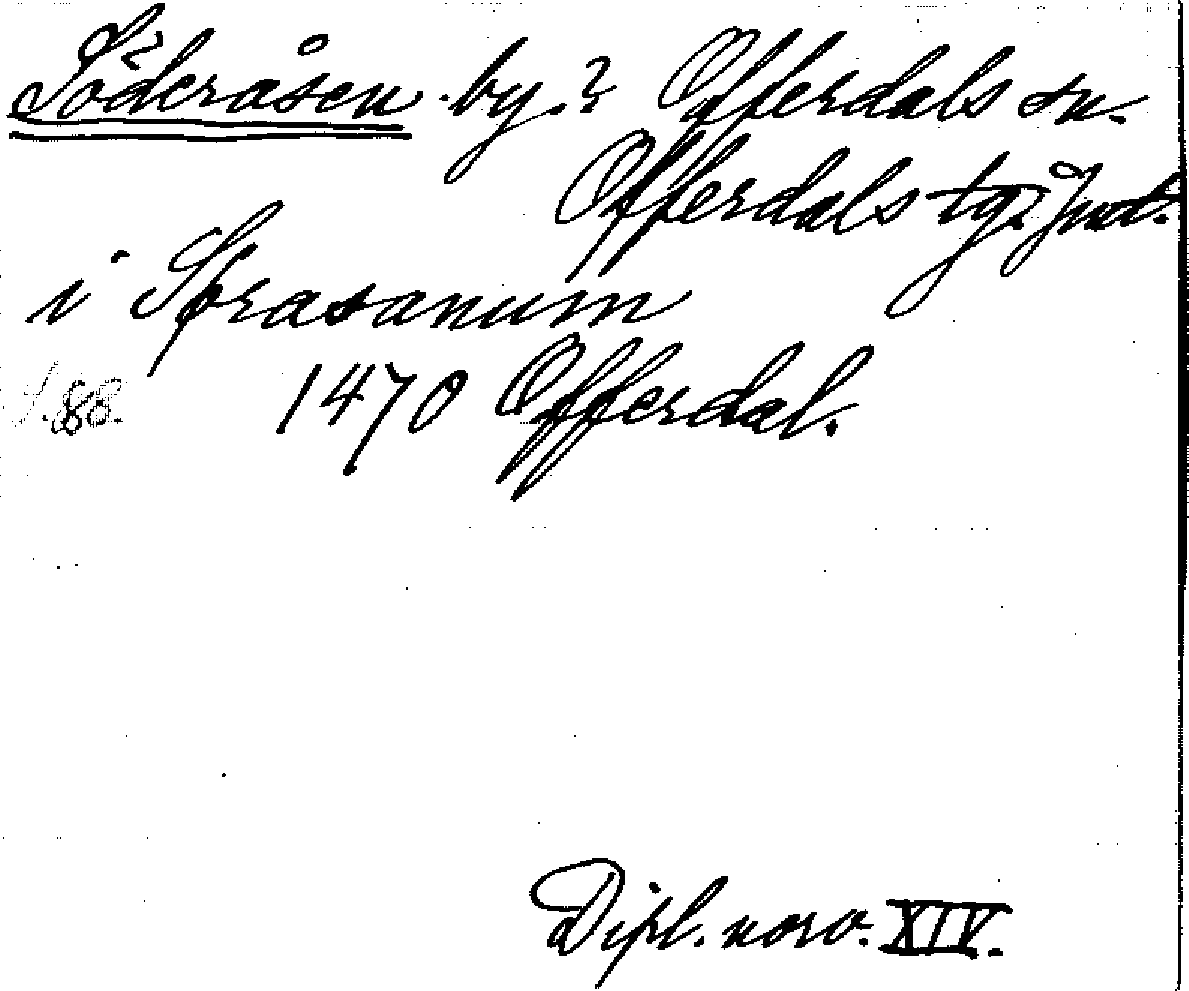 Söderåsen by.? Offerdals sn.
Offerdals tg. Jmt.
i Sprasanum
S. 88. 1470 Offerdal.
Dipl. norv. XIV.